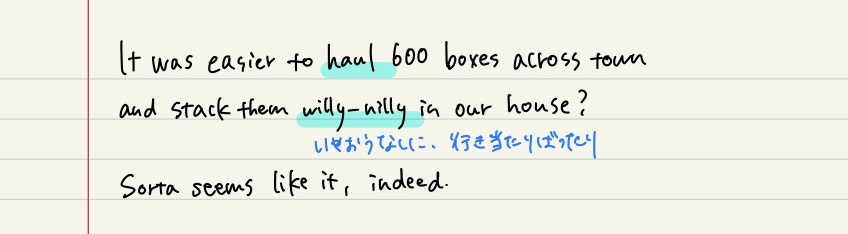 It was easier to haul 600 boxes across town
and stack them willy-nilly in our house?
いやおうなしに、行き当たりばったり
Sorta seems like it, indeed.